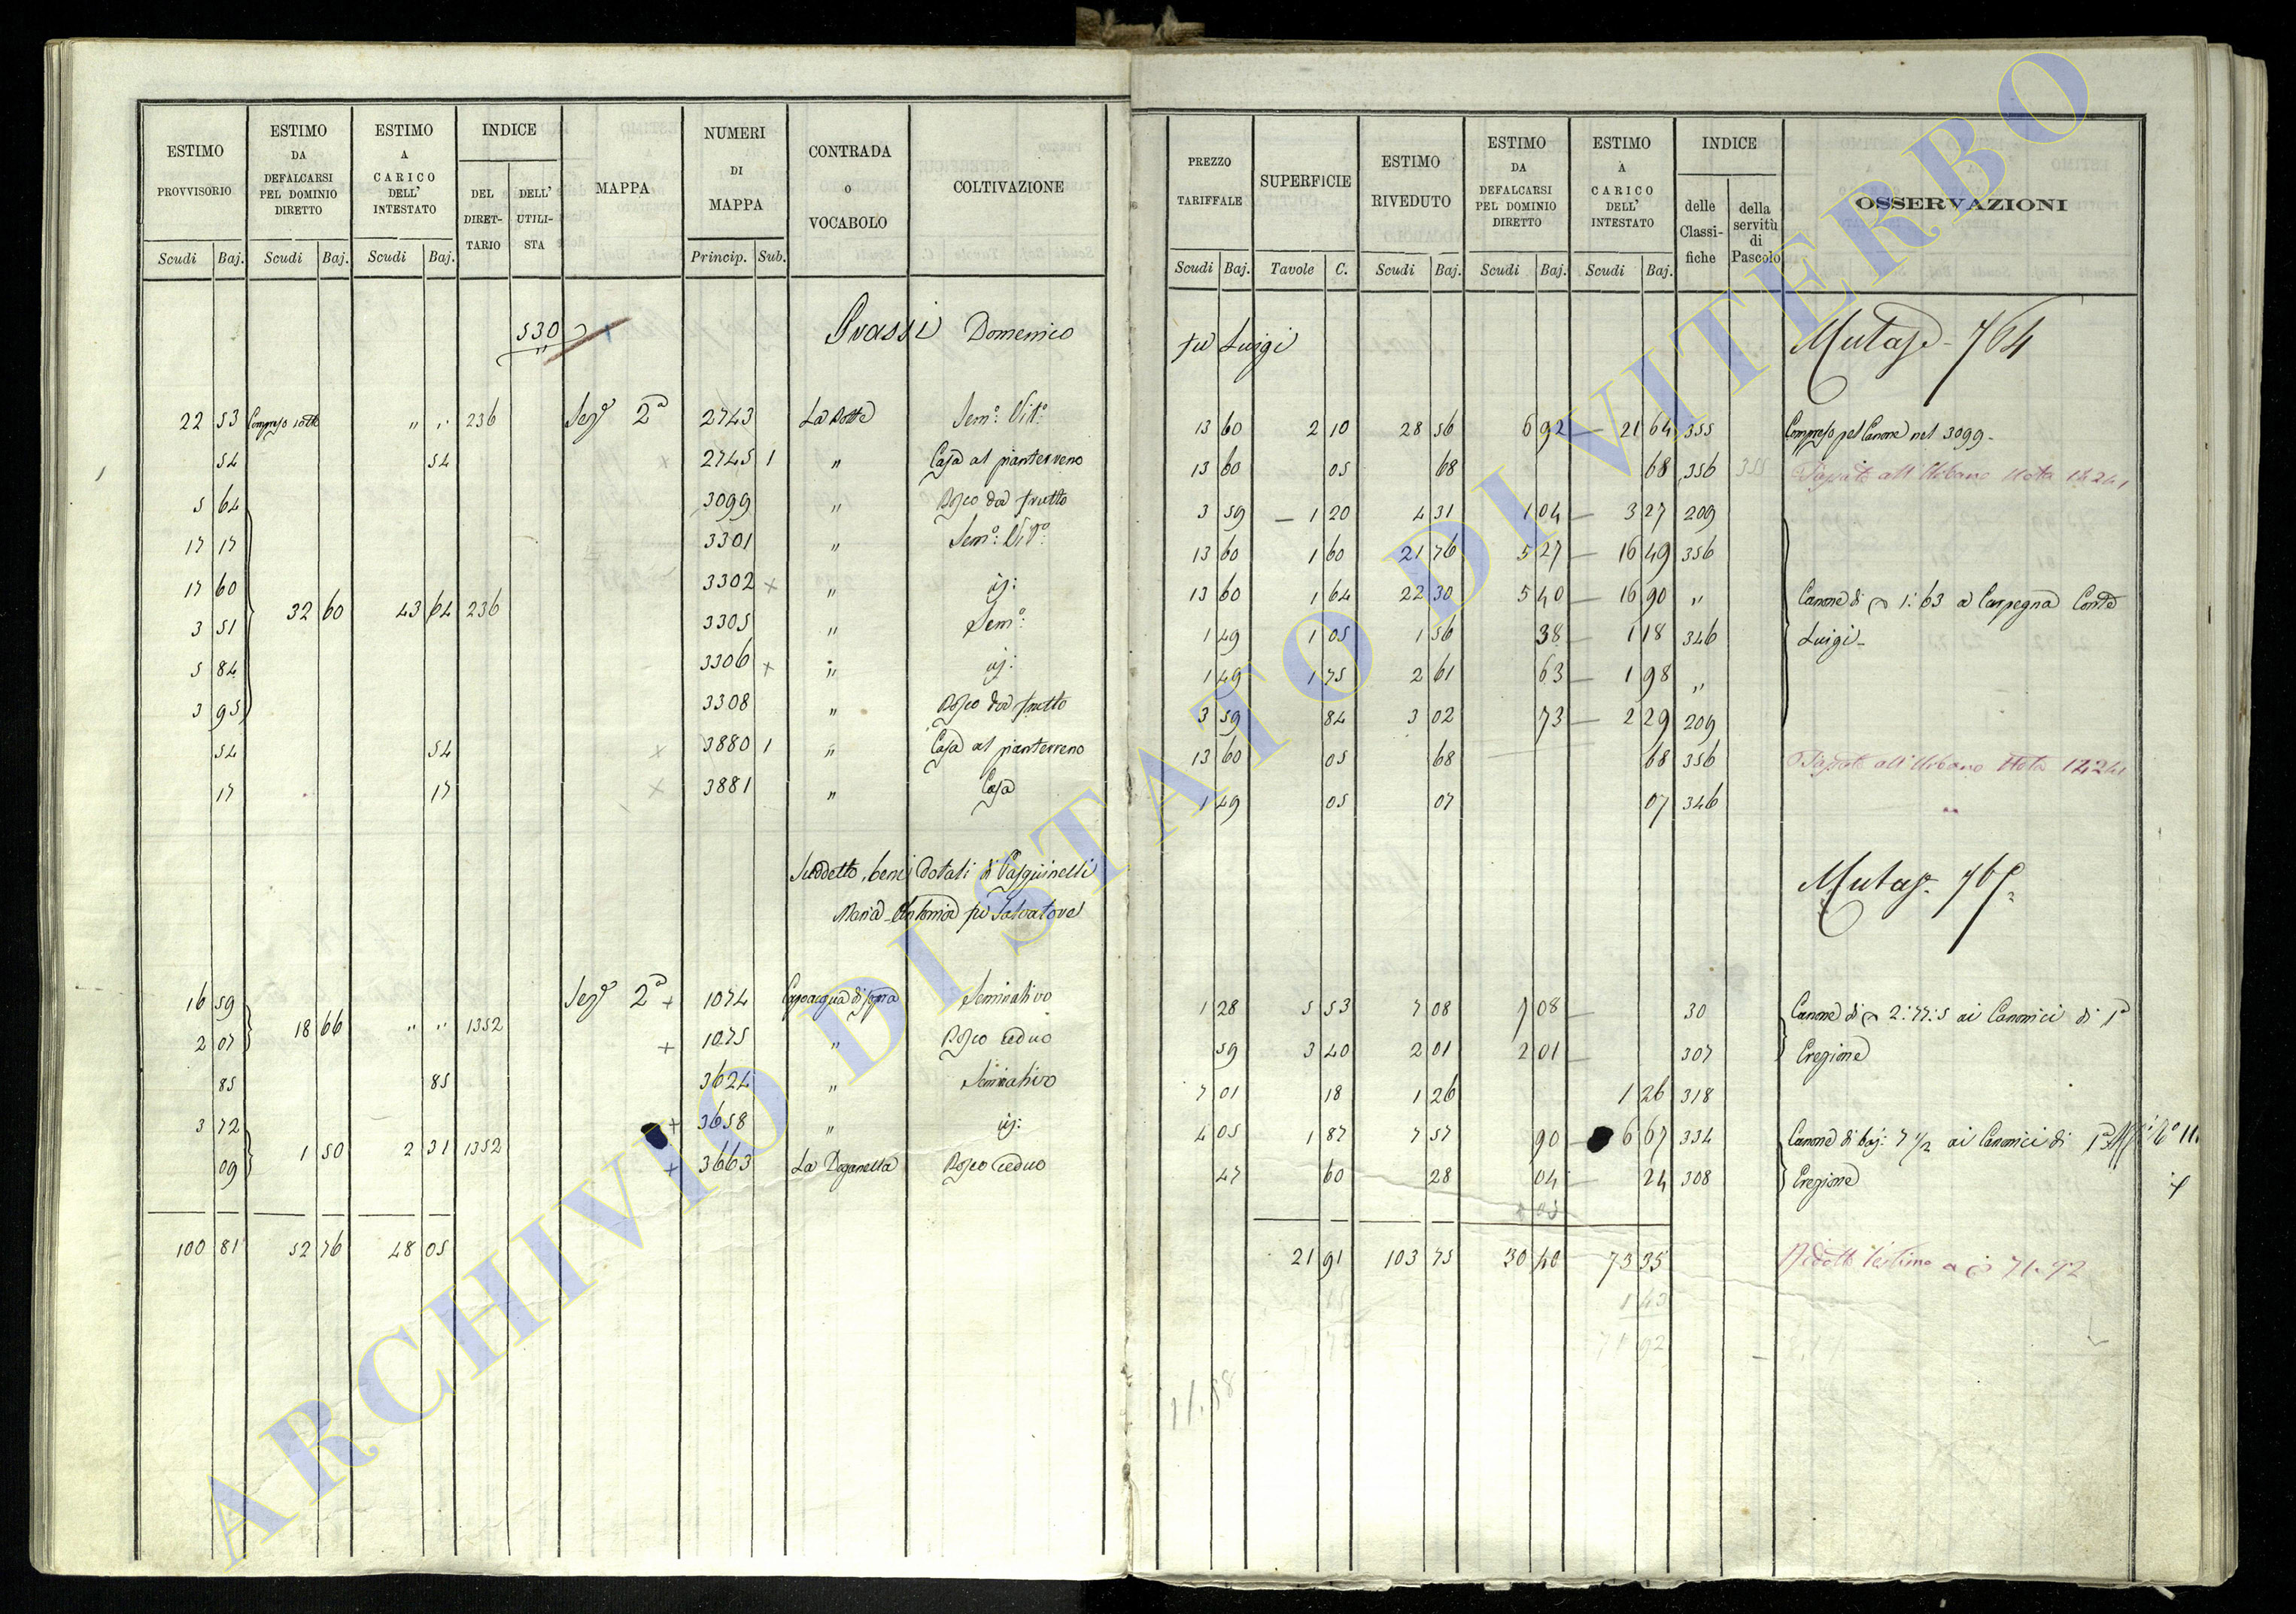 ESTIMO PROVVISORIO Scudi Baj.
ESTIMO DA DEFALCARSI PEL DOMINIO DIRETTO Scudi Baj.
ESTIMO A CARICO DELL' INTESTATO Scudi Baj.
INDICE DEL DIRETTARIO DELL' UTILISTA
MAPPA
NUMERI DI MAPPA Princip. Sub.
CONTRADA O VOCABOLO
COLTIVAZIONE
PREZZO TARIFFALE Scudi Baj.
SUPERFICIE Tavole C.
ESTIMO RIVEDUTO Scudi Baj.
ESTIMO DA DEFALCARSI PEL DOMINIO DIRETTO Scudi Baj.
ESTIMO A CARICO DELL' INTESTATO Scudi Baj.
INDICE delle Classifiche della servitù di Pascolo
OSSERVAZIONI
530 Domenico fu Luigi 764
22 53 " " 236 2a 2743 Sem.o Vit.o 13 60 2 10 28 56 6 92 — 21 64 355 Compreso pel Canone nel 3099 -
54 54 2745 1 " Casa al pianterreno 13 60 05 68 68 356 355
5 64 3099 " Bosco da frutto 3 59 — 1 20 4 31 1 04 — 3 27 209
17 17 3301 " Sem.o Vit.o 13 60 1 60 21 76 5 27 — 16 49 356
17 60 32 60 43 64 236 3302 x " id: 13 60 1 64 22 30 5 40 — 16 90 " Canone di 1:63 a Carpegna Conte
3 51 3305 " Sem.o 1 49 1 05 1 56 38 — 1 18 346 Luigi -
5 84 3306 x " id: 1 49 1 75 2 61 63 — 1 98 "
3 95 3308 " Bosco da frutto 3 59 84 3 02 73 — 2 29 209
54 54 x 3880 1 " Casa al pianterreno 13 60 05 68 68 356
17 17 x 3881 " Casa 1 49 05 07 07 346 "
Suddetto, beni Dotali di Pasquinelli
Maria Antonia fu Salvatore
16 59 18 66 " " 1352 2a + 1074 Capoacqua di sopra Seminativo 1 28 5 53 7 08 7 08 — 30 Canone di 2:77:5 ai Canonici di 1a
2 07 + 1075 " Bosco ceduo 59 3 40 2 01 2 01 — 307 Erezione
85 85 3624 " Seminativo 7 01 18 1 26 1 26 318
3 72 1 50 2 31 1352 + 3658 " id: 4 05 1 87 7 57 90 — 6 67 334 Canone di baj: 7 1/2 ai Canonici di 1a
09 + 3663 La Doganella Bosco ceduo 47 60 28 04 — 24 308 Erezione
100 81 52 76 48 05 21 91 103 75 30 40 73 35
1 43
71 92
ARCHIVIO DI STATO DI VITERBO